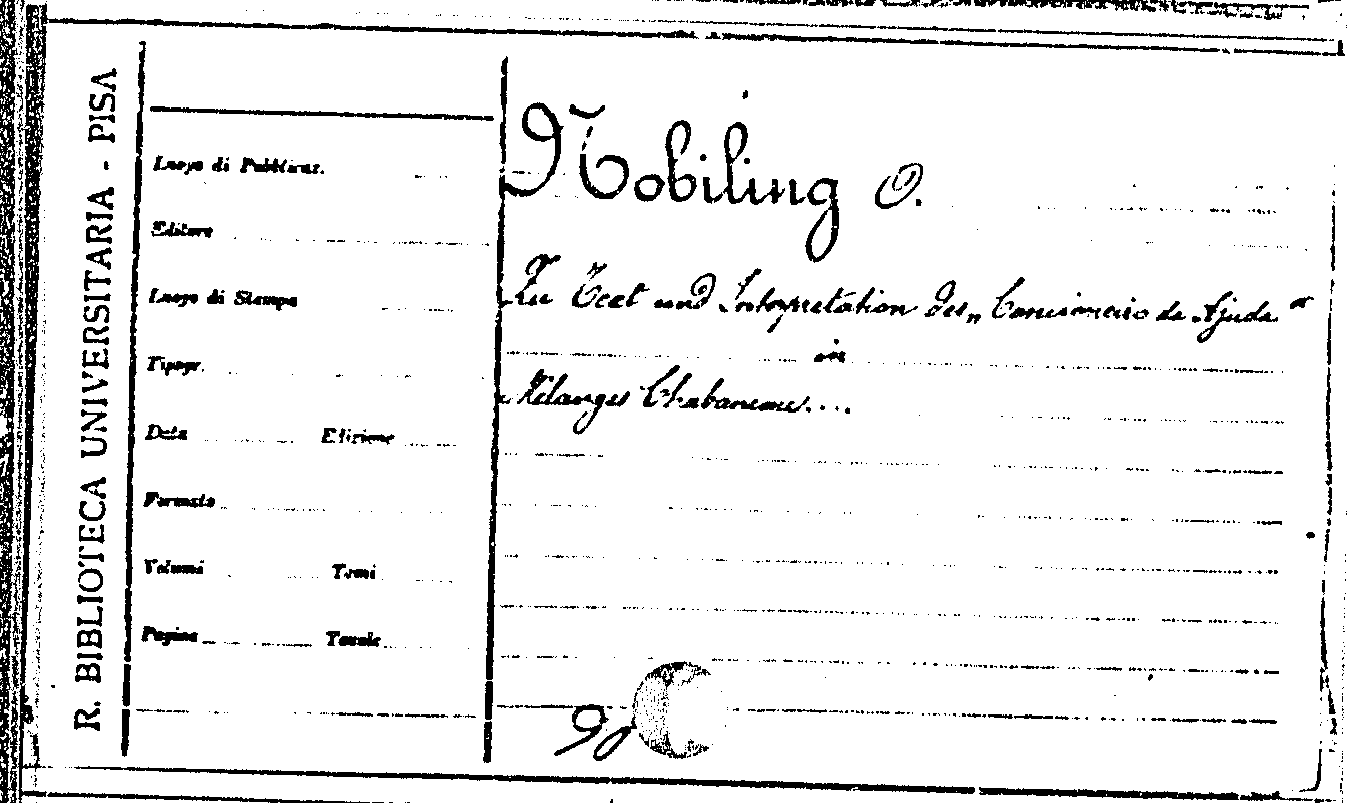 R. BIBLIOTECA UNIVERSITARIA - PISA
Luogo di Pubblicaz.
Editore
Luogo di Stampa
Tipogr.
Data Edizione
Formato
Volumi Tomi
Pagine Tavole
Nobiling O.
Zu Text und Interpretation des „Cancioneiro da Ajuda“
in
Mélanges Chabaneau....